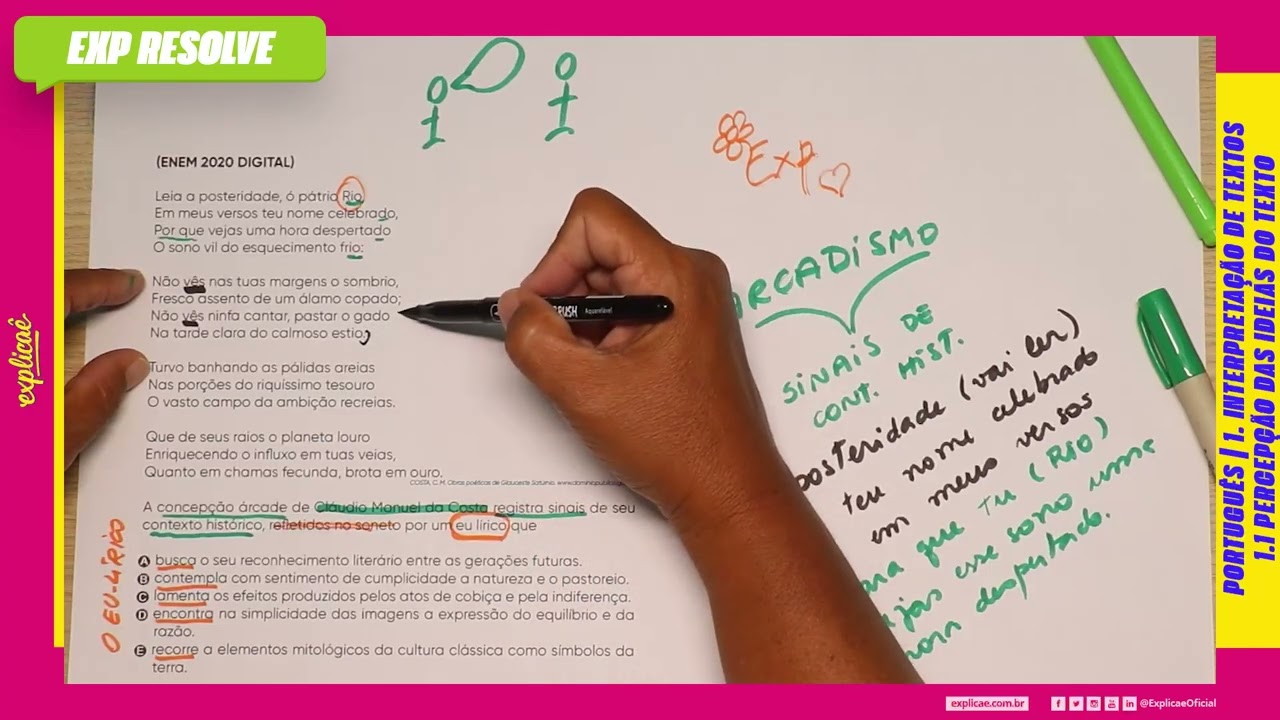 EXP RESOLVE
(ENEM 2020 DIGITAL)
Leia a posteridade, ó pátrio Rio
Em meus versos teu nome celebrado,
Por que vejas uma hora despertado
O sono vil do esquecimento frio:
Não vês nas tuas margens o sombrio,
Fresco assento de um álamo copado;
Não vês ninfa cantar, pastar o gado
Na tarde clara do calmoso estio,
Turvo banhando as pálidas areias
Nas porções do riquíssimo tesouro
O vasto campo da ambição recreias.
Que de seus raios o planeta louro
Enriquecendo o influxo em tuas veias,
Quanto em chamas fecunda, brota em ouro.
COSTA, C. M. Obras poéticas de Glauceste Satúrnio.
A concepção árcade de Cláudio Manuel da Costa registra sinais de seu
contexto histórico, refletidos no soneto por um eu lírico que
A busca o seu reconhecimento literário entre as gerações futuras.
B contempla com sentimento de cumplicidade a natureza e o pastoreio.
C lamenta os efeitos produzidos pelos atos de cobiça e pela indiferença.
D encontra na simplicidade das imagens a expressão do equilíbrio e da
razão.
E recorre a elementos mitológicos da cultura clássica como símbolos da
terra.
O EU-LÍRICO
Exp
ARCADISMO
SINAIS DE
CONT. HIST.
posteridade (vai ler)
teu nome celebrado
em meus versos
que tu (RIO)
esse sono uma
hora despertado.
explicaê
PORTUGUÊS | 1. INTERPRETAÇÃO DE TEXTOS
1.1 PERCEPÇÃO DAS IDEIAS DO TEXTO
explicae.com.br
@ExplicaeOficial